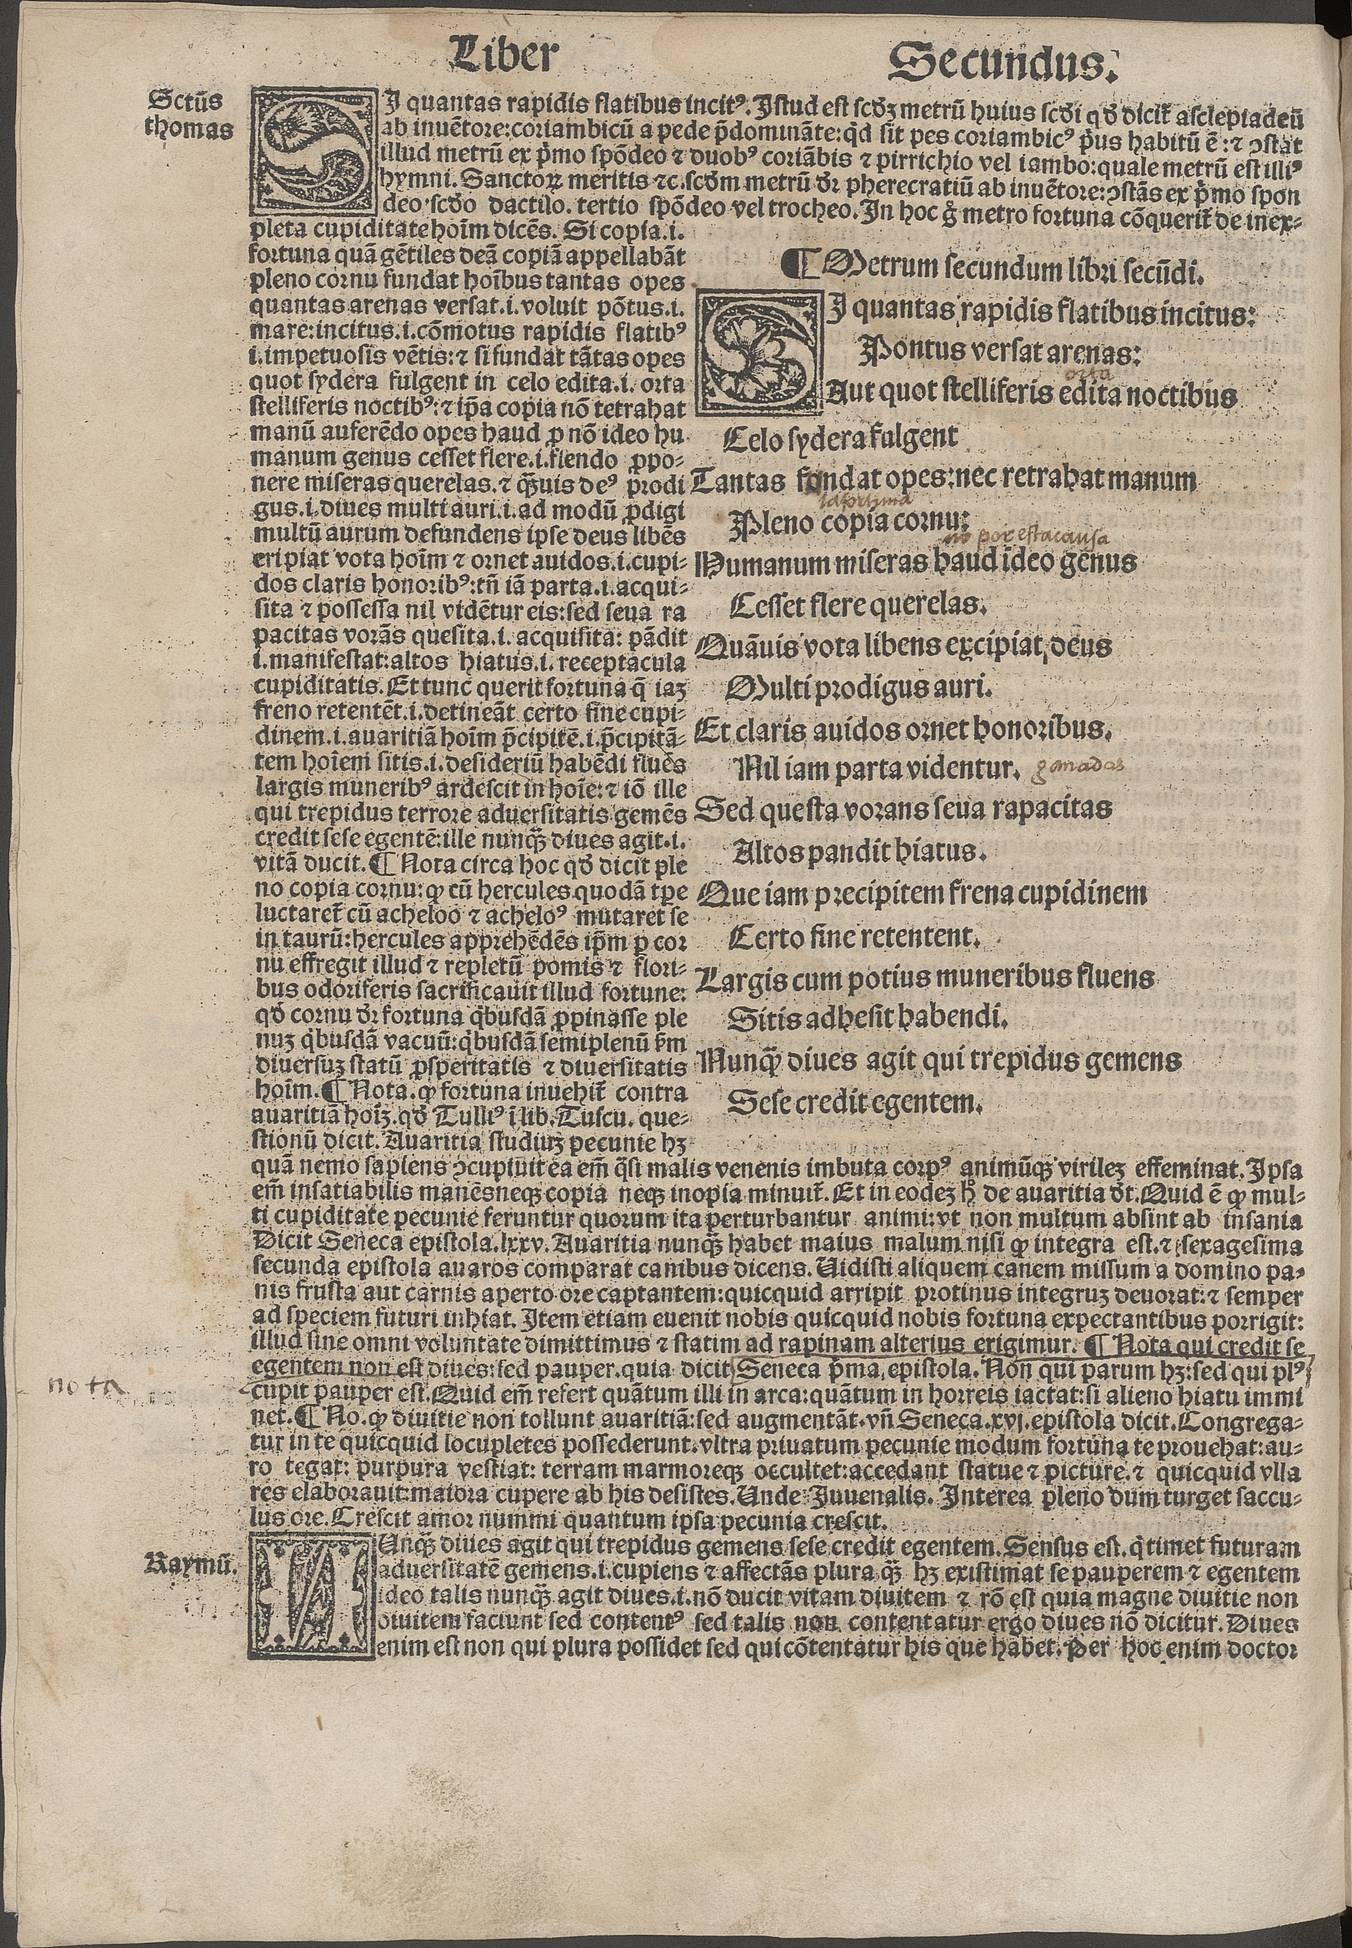 Liber Secundus.
Sctūs
thomas
SI quantas rapidis flatibus incitꝰ. Istud est scd̄ꝫ metrū huius scd̄i qd̄ dicit̄ asclepiadeū
ab inuētore: coriambicū a pede p̄domināte: qd̄ sit pes coriambicꝰ p̄us habitū ē: ⁊ ↄstat
illud metrū ex p̄mo spōdeo ⁊ duobꝰ coriābis ⁊ pirrichio vel iambo: quale metrū est illiꝰ
hymni. Sanctoꝝ meritis ⁊c. scd̄m metrū dr̄ pherecratiū ab inuētore: ↄstās ex p̄mo spon
deo scd̄o dactilo. tertio spōdeo vel trocheo. In hoc g̊ metro fortuna cōquerit̄ de inex-
pleta cupiditate hoīm dicēs. Si copia .i.
fortuna quā gētiles deā copiā appellabāt
pleno cornu fundat hoībus tantas opes
quantas arenas versat .i. voluit pōtus .i.
mare: incitus .i. cōmotus rapidis flatibꝰ
.i. impetuosis vētis: ⁊ si fundat tātas opes
quot sydera fulgent in celo edita .i. orta
stelliferis noctibꝰ: ⁊ ip̄a copia nō retrahat
manū auferēdo opes haud ꝓ nō ideo hu
manum genus cesset flere .i. flendo ꝓpo-
nere miseras querelas. ⁊ qꝫuis deꝰ prodi
gus .i. diues multi auri .i. ad modū ꝓdigi
multū aurum defundens ipse deus libēs
eripiat vota hoīm ⁊ ornet auidos .i. cupi-
dos claris honoribꝰ: tn̄ iā parta .i. acqui-
sita ⁊ possessa nil vidētur eis: sed seua ra
pacitas vorās quesita .i. acquisita: pādit
.i. manifestat: altos hiatus .i. receptacula
cupiditatis. Et tunc querit fortuna q̄ iaꝫ
freno retentēt .i. detineāt certo fine cupi-
dinem .i. auaritiā hoīm p̄cipitē .i. p̄cipitā-
tem hoīem sitis .i. desideriū habēdi fluēs
largis muneribꝰ ardescit in hoīe: ⁊ iō ille
qui trepidus terrore aduersitatis gemēs
credit sese egentē: ille nunqꝫ diues agit .i.
vitā ducit. ¶ Nota circa hoc qd̄ dicit ple
no copia cornu: ꝙ cū hercules quodā tp̄e
luctaret̄ cū acheloo ⁊ acheloꝰ mutaret se
in taurū: hercules apprehēdēs ip̄m ꝑ cor
nu effregit illud ⁊ repletū pomis ⁊ flori-
bus odoriferis sacrificauit illud fortune:
qd̄ cornu dr̄ fortuna q̄busdā ꝓpinasse ple
nuꝫ q̄busdā vacuū: q̄busdā semiplenū ẜm
diuersuꝫ statū ꝓsperitatis ⁊ diuersitatis
hoīm. ¶ Nota. ꝙ fortuna inuehit̄ contra
auaritiā hoīꝫ. qd̄ Tulliꝰ ī lib. Tuscu. que-
stionū dicit. Auaritia studiuꝫ pecunie hꝫ
¶ Metrum secundum libri secūdi.
SI quantas rapidis flatibus incitus:
Pontus versat arenas:
orta
Aut quot stelliferis edita noctibus
Celo sydera fulgent
Tantas fondat opes: nec retrahat manum
Pleno copia cornu:
no por esta causa
Humanum miseras haud ideo genus
Cesset flere querelas.
Quāuis vota libens excipiat, deus
Multi prodigus auri.
Et claris auidos ornet honoribus.
Nil iam parta videntur. ganadas
Sed questa vorans seua rapacitas
Altos pandit hiatus.
Que iam precipitem frena cupidinem
Certo fine retentent.
Largis cum potius muneribus fluens
Sitis adhesit habendi.
Nunqꝫ diues agit qui trepidus gemens
Sese credit egentem.
quā nemo sapiens ↄcupiuit ea em̄ q̄si malis venenis imbuta corpꝰ animūqꝫ virileꝫ effeminat. Ipsa
em̄ insatiabilis manēs neqꝫ copia neqꝫ inopia minuit̄. Et in eodeꝫ h̊ de auaritia dt̄. Quid ē ꝙ mul-
ti cupiditate pecunie feruntur quorum ita perturbantur animi: vt non multum absint ab insania
Dicit Seneca epistola .lxxv. Auaritia nunqꝫ habet maius malum nisi ꝙ integra est. ⁊ sexagesima
secunda epistola auaros comparat canibus dicens. Uidisti aliquem canem missum a domino pa-
nis frusta aut carnis aperto ore captantem: quicquid arripit protinus integruꝫ deuorat: ⁊ semper
ad speciem futuri inhiat. Item etiam euenit nobis quicquid nobis fortuna expectantibus porrigit:
illud sine omni voluntate dimittimus ⁊ statim ad rapinam alterius erigimur. ¶ Nota qui credit se
egentem non est diues: sed pauper. quia dicit Seneca p̄ma epistola. Non qui parum hꝫ: sed qui plꝰ
nota
cupit pauper est. Quid em̄ refert quātum illi in arca: quātum in horreis iactat: si alieno hiatu immi
net. ¶ No. ꝙ diuitie non tollunt auaritiā: sed augmentāt. vn̄ Seneca .xvj. epistola dicit. Congrega-
tur in te quicquid locupletes possederunt. vltra priuatum pecunie modum fortuna te prouehat: au-
ro tegat: purpura vestiat: terram marmoreqꝫ occultet: accedant statue ⁊ picture. ⁊ quicquid vlla
res elaborauit: maiora cupere ab his desistes. Unde Juuenalis. Interea pleno dum turget saccu-
lus ore. Crescit amor nummi quantum ipsa pecunia crescit.
Raymū.
NUnqꝫ diues agit qui trepidus gemens sese credit egentem. Sensus est. q̄ timet futuram
aduersitatē gemens .i. cupiens ⁊ affectās plura qꝫ hꝫ existimat se pauperem ⁊ egentem
ideo talis nunqꝫ agit diues .i. nō ducit vitam diuitem ⁊ rō est quia magne diuitie non
diuitem faciunt sed contentꝰ sed talis non contentatur ergo diues nō dicitur. Diues
enim est non qui plura possidet sed qui cōtentatur his que habet. Per hoc enim doctor